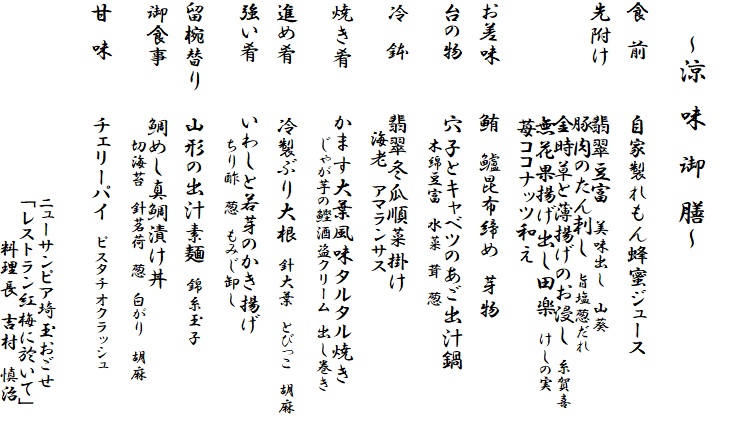 ～涼味御膳～
食前 自家製れもん蜂蜜ジュース
先附け 翡翠豆富 美味出し 山葵
豚肉のたん刺し 旨塩葱だれ
金時草と薄揚げのお浸し 糸賀喜
無花果揚げ出し田楽 けしの実
苺ココナッツ和え
お差味 鮪 鱸昆布締め 芽物
台の物 穴子とキャベツのあご出汁鍋
木綿豆富 水菜 茸 葱
冷鉢 翡翠冬瓜順菜掛け
海老 アマランサス
焼き肴 かます大葉風味タルタル焼き
じゃが芋の鰹酒盗クリーム 出し巻き
進め肴 冷製ぶり大根 針大葉 とびっこ 胡麻
強い肴 いわしと若芽のかき揚げ
ちり酢 葱 もみじ卸し
留椀替り 山形の出汁素麺 錦糸玉子
御食事 鯛めし真鯛漬け丼
切海苔 針茗荷 葱 白がり 胡麻
甘味 チェリーパイ ピスタチオクラッシュ
ニューサンピア埼玉おごせ
「レストラン紅梅に於いて」
料理長 吉村 慎治